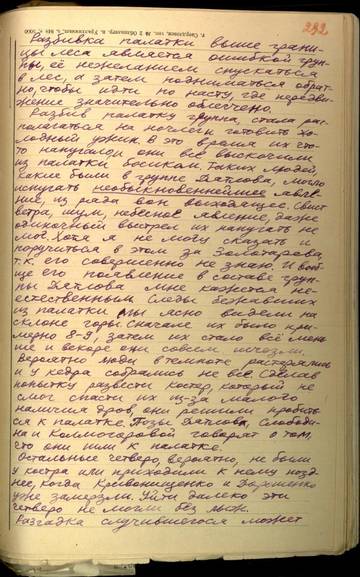 292
Разбивка палатки выше грани-
цы леса является ошибкой груп-
пы, её нежеланием спускаться
в лес, а затем подниматься обрат-
но, чтобы идти по насту, где передви-
жение значительно облегчено.
Разбив палатку группа, стала рас-
полагаться на ночлег и готовить хо-
лодный ужин. В это время их кто-
то напугал и они все выскочили
из палатки босиком. Таких людей,
какие были в группе Дятлова, могло
испугать необыкновеннейшее явле-
ние, из ряда вон выходящее. Свист
ветра, шум, небесное явление, даже
одиночный выстрел их напугать не
мог. Хотя я не могу сказать и
поручиться в этом за Золотарева,
т.к. его совершенно не знаю. И вооб-
ще его появление в составе груп-
пы Дятлова мне кажется не-
естественным. Следы бежавших
из палатки мы ясно видели на
склоне горы. Сначала их было при-
мерно 8-9, затем их стало всё мень-
ше и вскоре они совсем исчезли.
Вероятно люди в темноте растерялись
и у кедра собрались не все. Сделав
попытку развести костер, который не
смог спасти их из-за малого
наличия дров, они решили пробить-
ся к палатке. Позы Дятлова, Слободи-
на и Колмогоровой говорят о том,
что они шли к палатке.
Остальные четверо, вероятно, не были
у костра или приходили к нему позд-
нее, когда Кривонищенко и Дорошенко
уже замерзли. Уйти далеко эти
четверо не могли без лыж.
Разгадка случившегося может